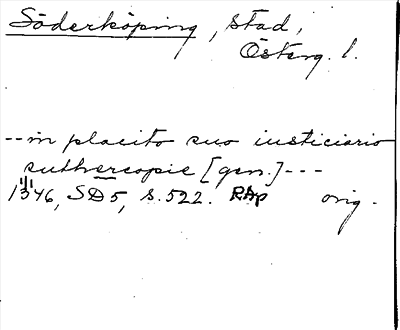 Söderköping, stad,
Österg. l.
--in placito suo iusticiario
suthercopie [gen.]---
1346, SD5, s.522. RAp orig.